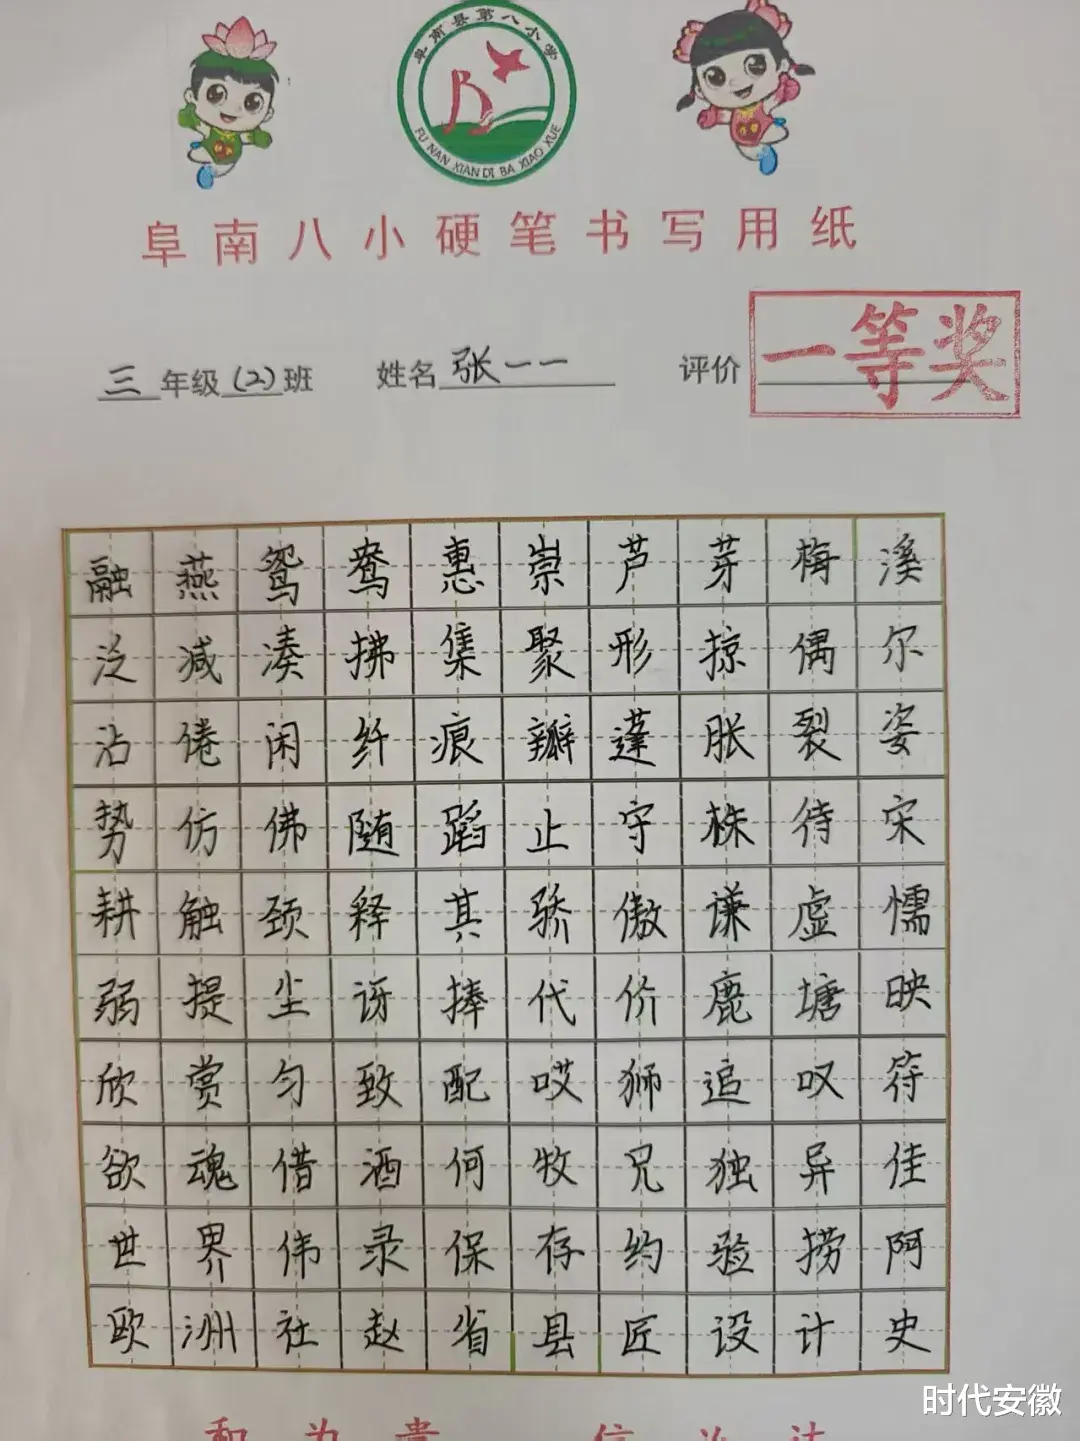 阜南县第八小学
FU NAN XIAN DI BA XIAO XUE
阜南八小硬笔书写用纸
三年级(2)班 姓名张一一 评价 一等奖
融燕鸳鸯惠崇芦芽梅溪
泛减凑拂集聚形掠偶尔
沾倦闲纤痕瓣蓬胀裂姿
势仿佛随蹈止守株待宋
耕触颈释其骄傲谦虚懦
弱提尘讶捧代价鹿塘映
欣赏匀致配哎狮追叹符
欲魂借酒何牧兄独异佳
世界伟录保存约验捞阿
欧洲社赵省县匠设计史
和为贵
时代安徽